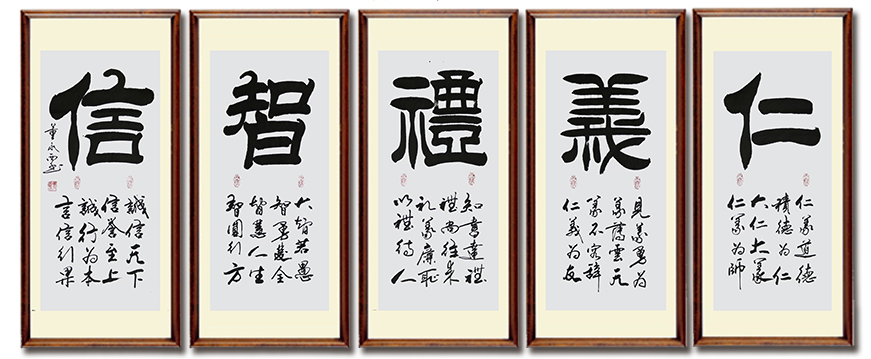 仁
仁義道德
積德為仁
大仁大義
仁義為師
義
見義勇為
義薄雲天
義不容辭
仁義為友
禮
知書達禮
禮尚往來
礼義廉恥
以禮待人
智
大智若愚
智勇雙全
智慧人生
智圓行方
信
誠信天下
信譽至上
誠行為本
言信行果